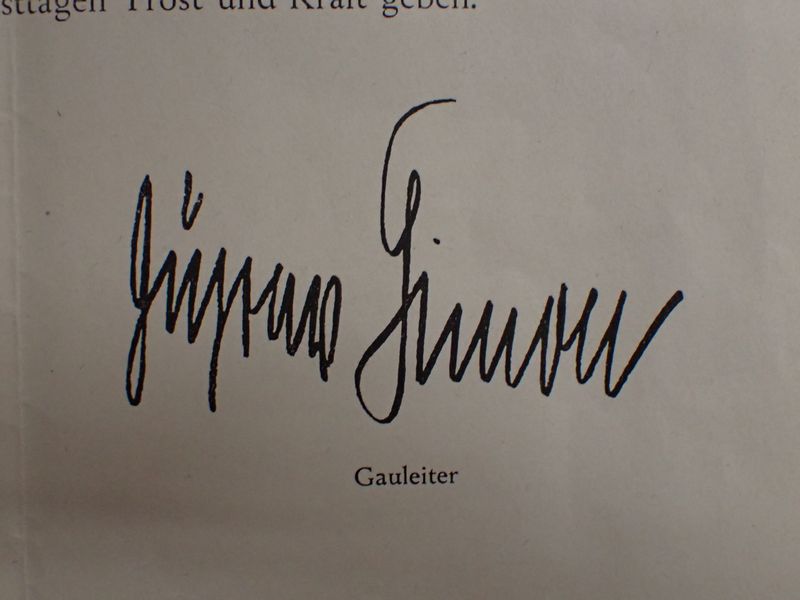 sttagen Trost und Kraft geben.
Gustav Simon
Gauleiter